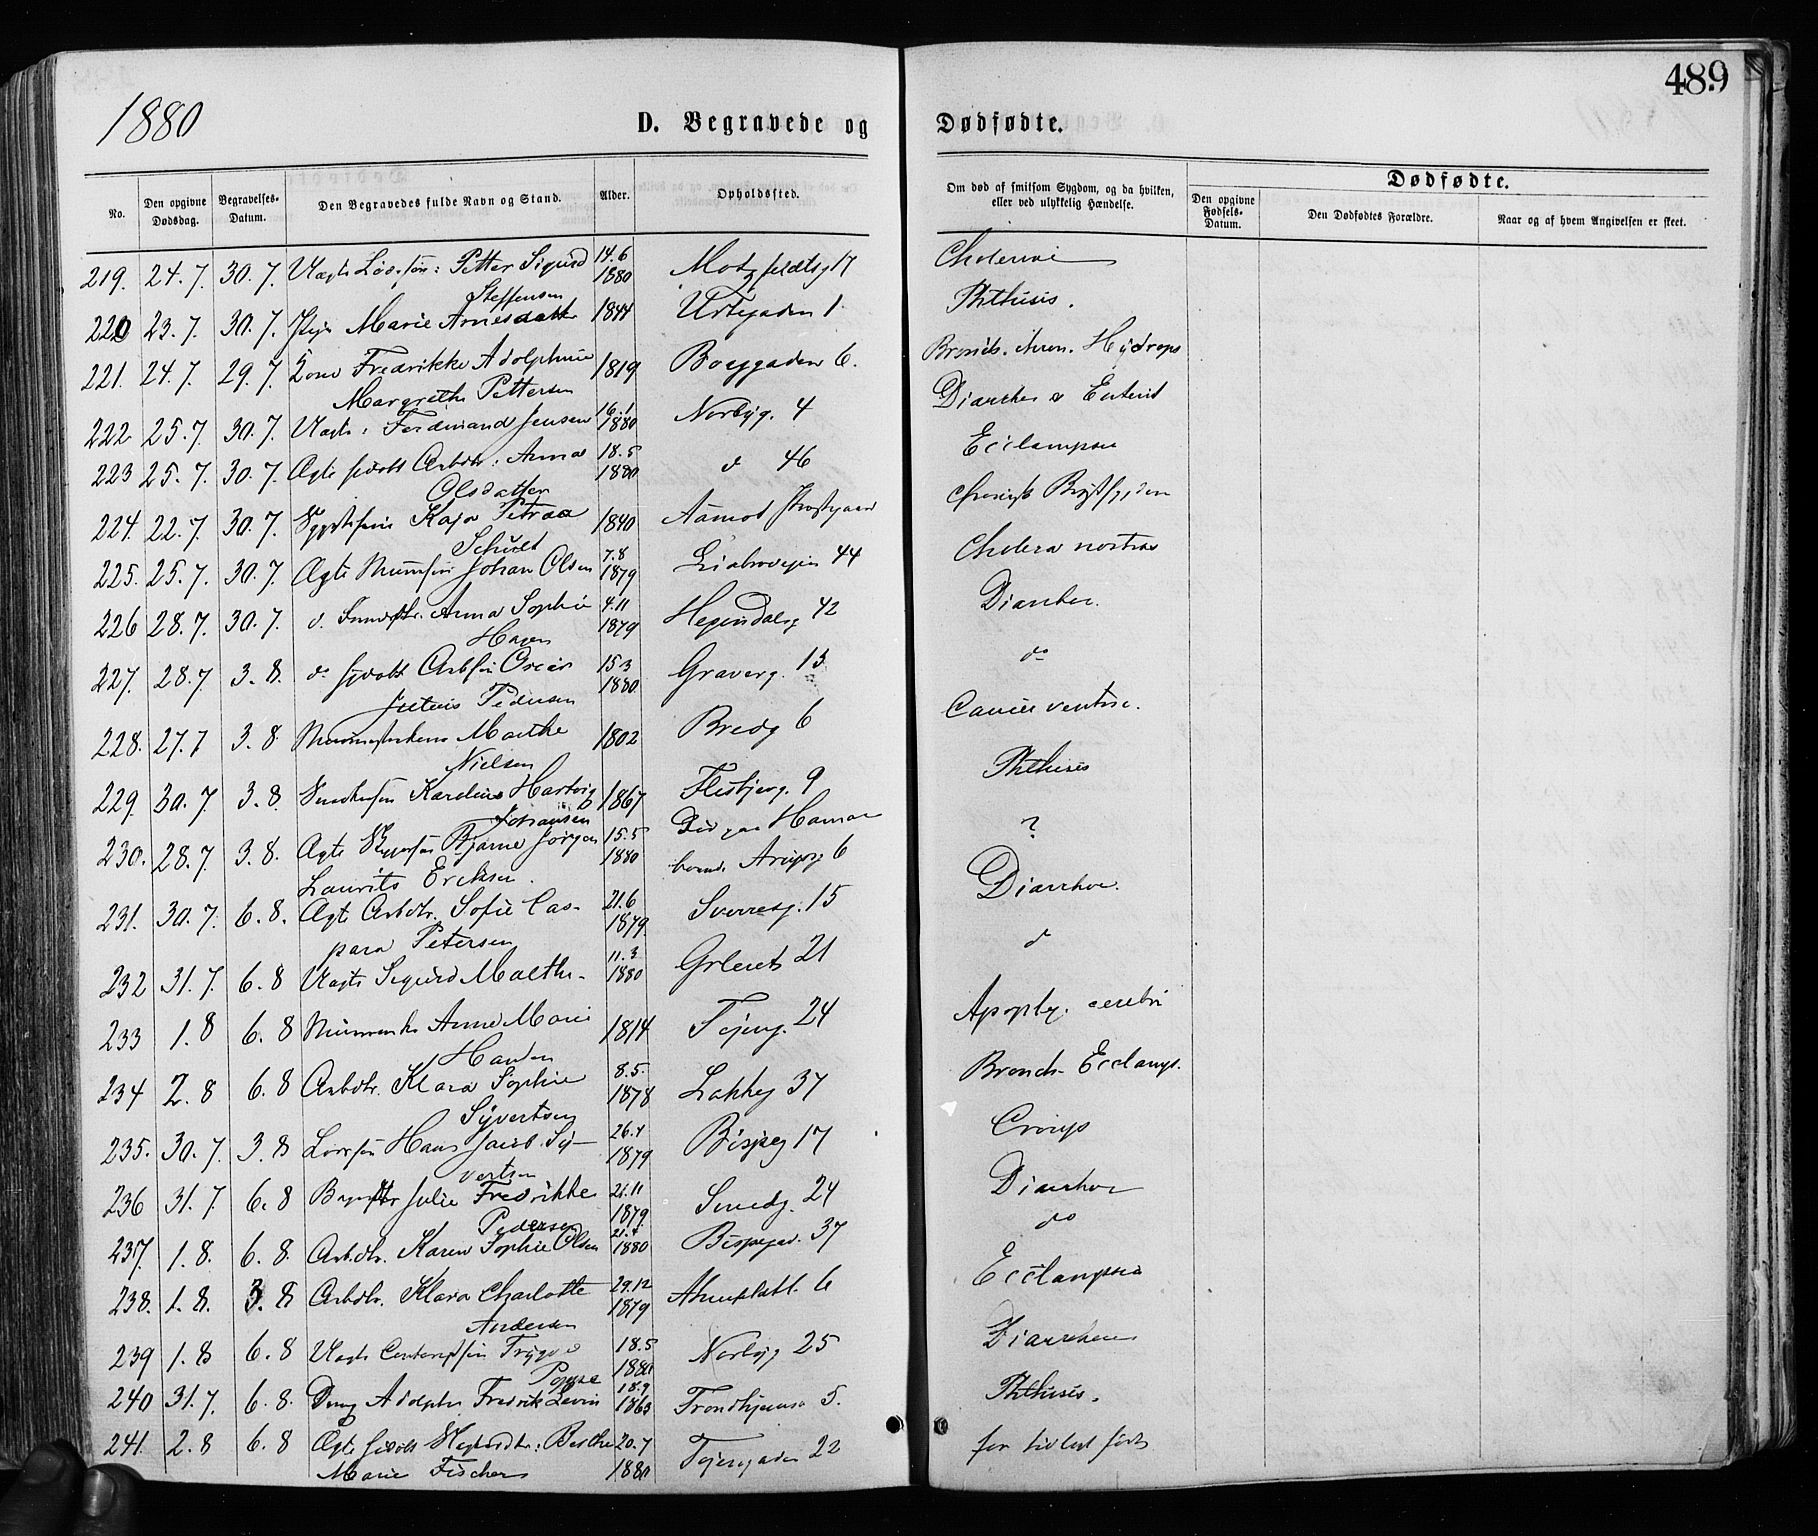 489
1880
D. Begravede og Dødfødte.
No. Den opgivne Dødsdag. Begravelses-Datum. Den Begravedes fulde Navn og Stand. Alder. Opholdssted. Om død af smitsom Sygdom, og da hvilken, eller ved ulykkelig Hændelse.
Dødfødte.
Den opgivne Fødsels-Datum. Den Dødfødtes Forældre. Naar og af hvem Angivelsen er skeet.
219. 24.7. 30.7. Uægte Petter Sigurd Steffensen 14.6 1880 17 Cholerine
220 23.7. 30.7. Pige Marie Arnesdatter 1844 Urtegaden 1. Phthisis.
221. 24.7. 29.7. Kone Fredrikke Adolphine Margrethe Pettersen 1819 Borggaden 6. Bronch. chron. Hydrops
222 25.7. 30.7. Uægte: Ferdinand Jensen 16.1 1880 Norbyg. 4 Diarrhoe & Enterit
223 25.7. 30.7. Ægte Arbdtr: Anna Olsdatter 18.5 1880 d 46 Ecclampsia
224. 22.7. 30.7. Kaja Petrea Schult 1840 Aamot chronisk
225. 25.7. 30.7. Ægte Johan Olsen 7.8 1879 Liabroveien 44 Cholera nostras
226 28.7. 30.7. d. Anna Sophie Hagen 4.11 1879 Hegindalsg 42 Diarrhoe.
227. 28.7 3.8. do Arbsøn Oscar Julius Pedersen 15.3 1880 Graverg. 13 do
228. 27.7 3.8. Marthe Nielsen 1802 Bredg 6 Cancer ventric.
229. 30.7 3.8. Karelius Hartvig Johansen 1867 Flisbjerg. 9 Phthisis
230. 28.7. 3.8. Ægte Bjarne Jørgen Laurits Eriksen. 15.5 1880 Hamar 6 ?
231. 30.7. 6.8. Ægt Arbdtr. Sofie Caspara Petersen 21.6 1879. Sverresg. 15 Diarrhoe.
232 31.7. 6.8 Uægte Sigurd Malthe- 11.3 1880 Grleret 21 d
233 1.8 6.8 Anne Marie 1814 Tøieng. 24 Apoplex. cerebri
234 2.8 6.8 Arbdtr. Klara Sophie Syvertsen 8.5. 1878 Lakkeg 37 Bronch- Ecclamps.
235. 30.7. 3.8 Hans Jacob Syvertsen 26.4 1879 Bispeg 17 Croup
236 31.7. 6.8 Julie Fredrikke Pedersen 21.11 1879. Smedg. 24 Diarrhoe
237. 1.8. 6.8. Arbdtr. Karen Sophie Olsen 21.7 1880 Bispegad. 37 do
238. 1.8. 3.8 Arbdtr. Klara Charlotte Andersen 29.12 1879 6 Ecclampsia
239 1.8 6.8 Uægte Trygve 18.5 1880 Norbyg 25 Diarrhoe
240 31.7. 6.8. Dreng Adolph Fredrik Levin 18.9 1863 Trondhjemsv 5. Phthisis.
241. 2.8 6.8 Ægte Berthe Marie Fischer 20.7 1880 Tøiengaden 22 for tidlest født